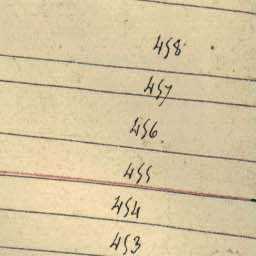 458
457
456
455
454
453